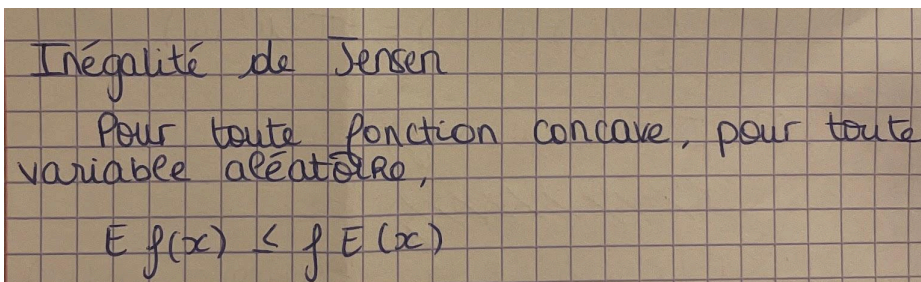 Inégalité de Jensen
Pour toute fonction concave, pour toute
variable aléatoire,
E f(x) ≤ f E(x)